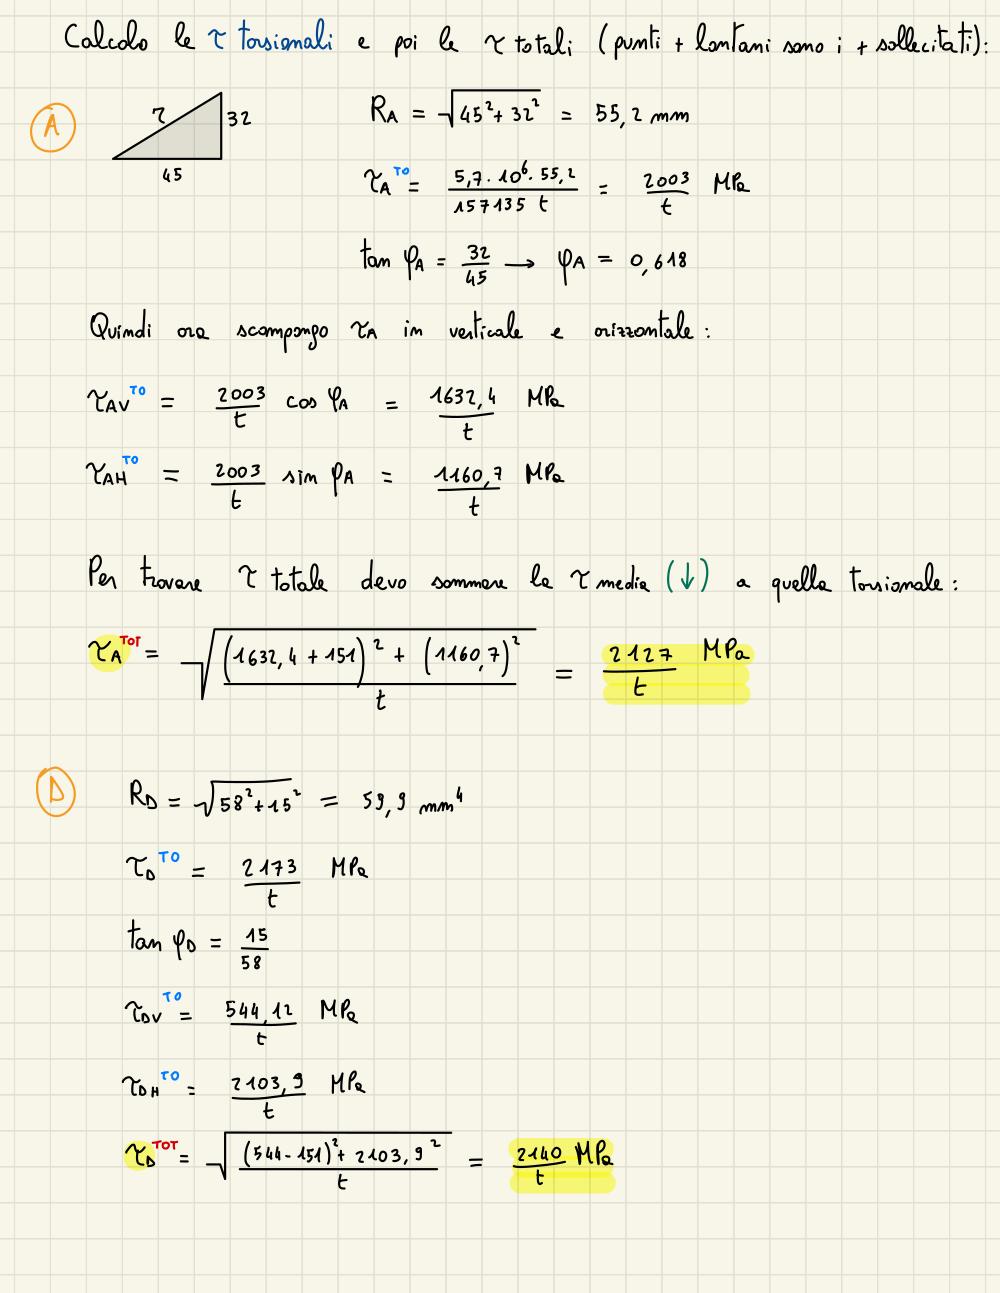 Calcolo le τ torsionali e poi le τ totali (punti + lontani sono i + sollecitati):
A
τ 32
45
R_A = √(45² + 32²) = 55,2 mm
τ_A^TO = (5,7 · 10⁶ · 55,2)/(157135 t) = 2003/t MPa
tan φ_A = 32/45 → φ_A = 0,618
Quindi ora scompongo τ_A in verticale e orizzontale:
τ_AV^TO = 2003/t cos φ_A = 1632,4/t MPa
τ_AH^TO = 2003/t sin φ_A = 1160,7/t MPa
Per trovare τ totale devo sommare la τ media (↓) a quella torsionale:
τ_A^TOT = √(((1632,4 + 151)² + (1160,7)²)/t) = 2127/t MPa
D
R_D = √(58² + 15²) = 59,9 mm⁴
τ_D^TO = 2173/t MPa
tan φ_D = 15/58
τ_DV^TO = 544,12/t MPa
τ_DH^TO = 2103,9/t MPa
τ_D^TOT = √(((544 - 151)² + 2103,9²)/t) = 2140/t MPa